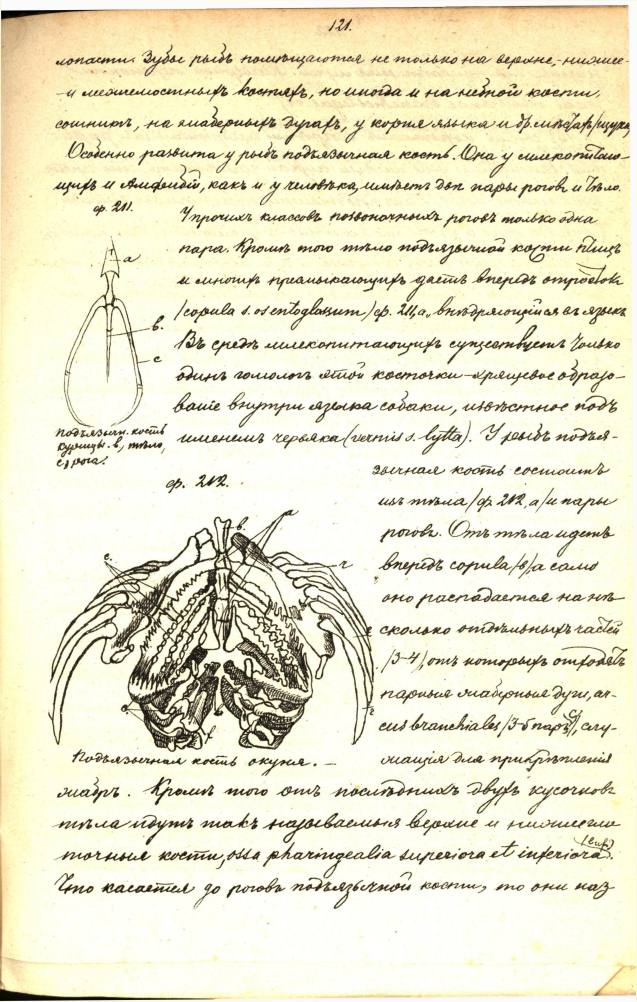 121.
лопасти. Зубы рыбъ помѣщаются не только на верхне,- нижне-
-и межчелюстныхъ костяхъ, но иногда и на нёбной кости,
сошникѣ, на жаберныхъ дугахъ, у корня языка и др. мѣстахъ /щука/
Особенно развита у рыбъ подъязычная кость. Она у млекопитаю-
щихъ и Амфибій, какъ и у человѣка, имѣетъ двѣ пары роговъ и тѣло.
ф. 211.
У прочихъ классовъ позвоночныхъ роговъ только одна
пара. Кромѣ того тѣло подъязычной кости птицъ
и многихъ пресмыкающихъ даетъ впередъ отростокъ
/copula s. os entoglossum/ ф. 211, а, внѣдряющійся въ языкъ
Въ средѣ млекопитающихъ существуетъ только
одинъ гомологъ этой косточки - хрящевое образо-
ваніе внутри языка собаки, извѣстное подъ
именемъ червяка (vermis s. lytta). У рыбъ подъя-
а
в.
с
Подъязычн. кость
курицы. в, тѣло,
с, рога.
зычная кость состоитъ
изъ тѣла /ф. 212, а/ и пары
роговъ. Отъ тѣла идетъ
впередъ copula /в/, а само
оно распадается на нѣ-
сколько отдѣльныхъ частей
/3-4/, отъ которыхъ отходятъ
парныя жаберныя дуги, ar-
cus branchiales /3-5 паръ/, слу-
жащія для прикрѣпленія
ф. 212.
в.
а
с.
г
е
г
е
f
Подъязычная кость окуня. -
жабръ. Кромѣ того отъ послѣднихъ двухъ кусочковъ
тѣла идутъ такъ называемыя верхніе и нижнегло
точныя кости, ossa pharingealia superiora et inferiora.
Что касается до роговъ подъязычной кости, то они наз